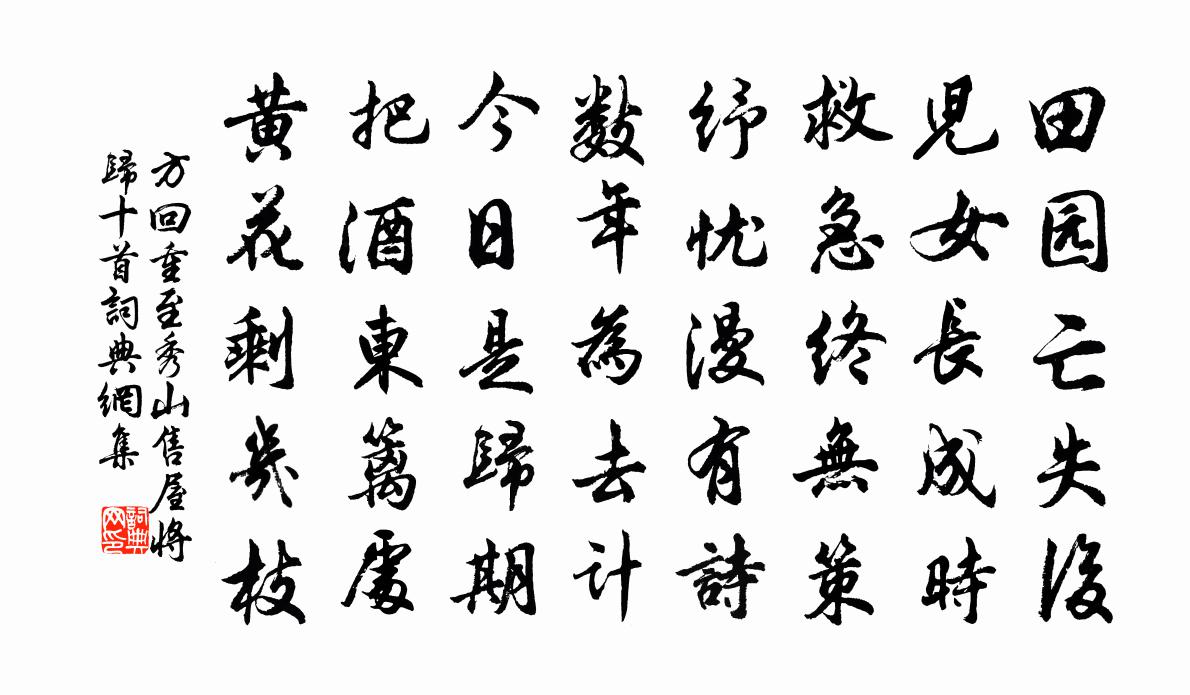 田园亡失後
児女長成時
救急終無策
纾忧漫有詩
数年為去计
今日是歸期
把酒東篱處
黄花剩幾枝
方回重至秀山售屋将
歸十首詞典網集
詞典网印